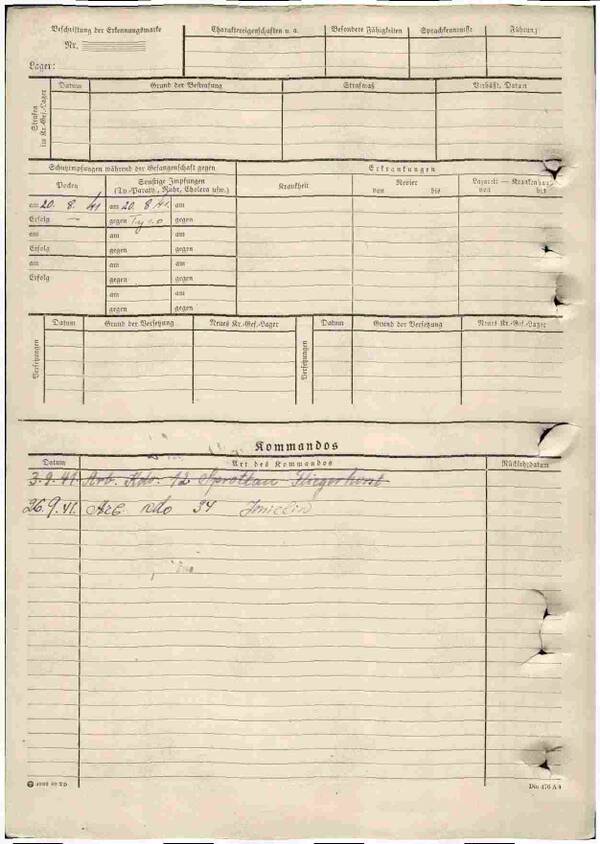 Beschriftung der Erkennungsmarke
Nr.
Lager:
Charaktereigenschaften u. a.
Besondere Fähigkeiten
Sprachkenntnisse
Führung
Strafen
im Kr.-Gef.-Lager
Datum
Grund der Bestrafung
Strafmaß
Verbüßt, Datum
Schutzimpfungen während der Gefangenschaft gegen
Erkrankungen
Pocken
Sonstige Impfungen
(Ty.-Paraty., Ruhr, Cholera usw.)
Krankheit
Revier
von bis
Lazarett — Krankenhaus
von bis
am 20. 8. 41 am 20. 8. 41. am
Erfolg — gegen gegen
am am am
Erfolg gegen gegen
am am am
Erfolg gegen gegen
am am
gegen gegen
Versetzungen
Datum
Grund der Versetzung
Neues Kr.-Gef.-Lager
Versetzungen
Datum
Grund der Versetzung
Neues Kr.-Gef.-Lager
Kommandos
Datum
Art des Kommandos
Rückkehrdatum
3.9.41. Arb. Kdo. 12 Sprottau Fliegerhorst
26.9.41. 34
Din 476 A 4